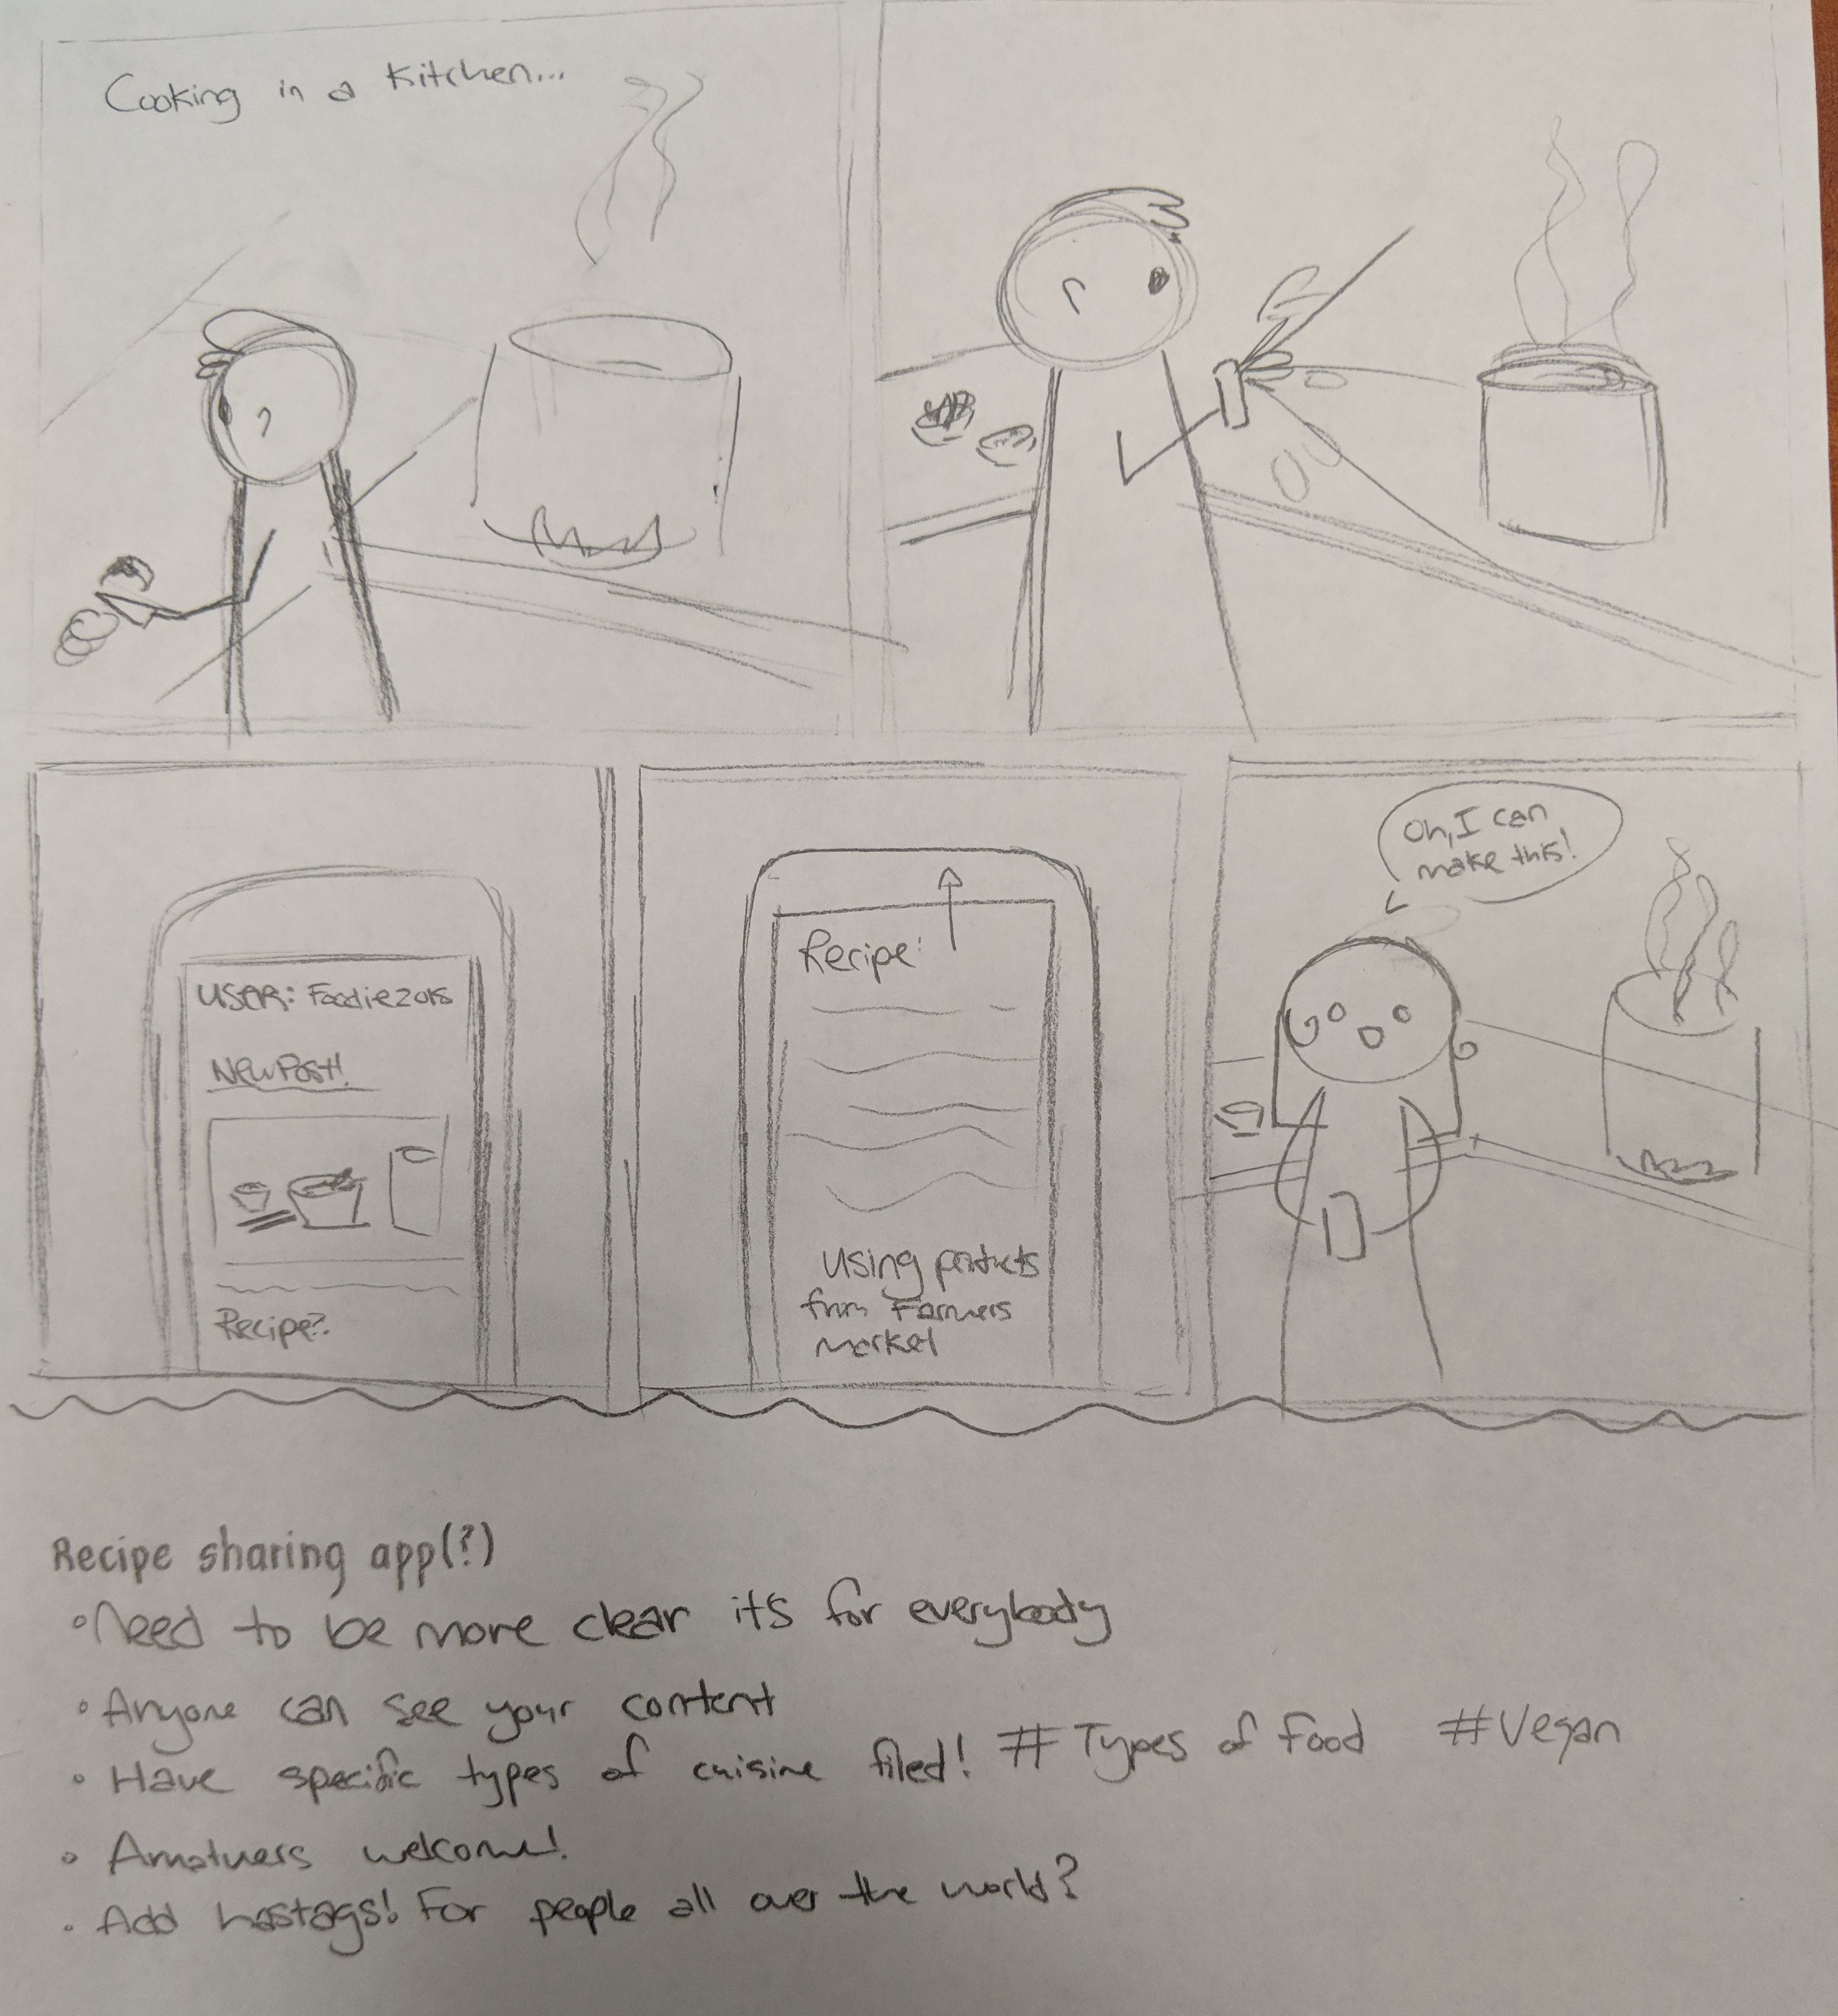 Cooking in a Kitchen...
USER: Foodie2018
New Post!
Recipe?
Recipe:
using products
from Farmers
market
Oh, I can
make this!
Recipe sharing app(?)
• Need to be more clear its for everybody
• Anyone can see your content
• Have specific types of cuisine filed! # Types of Food #Vegan
• Amatuers welcome!
• Add hastags! For people all over the world?